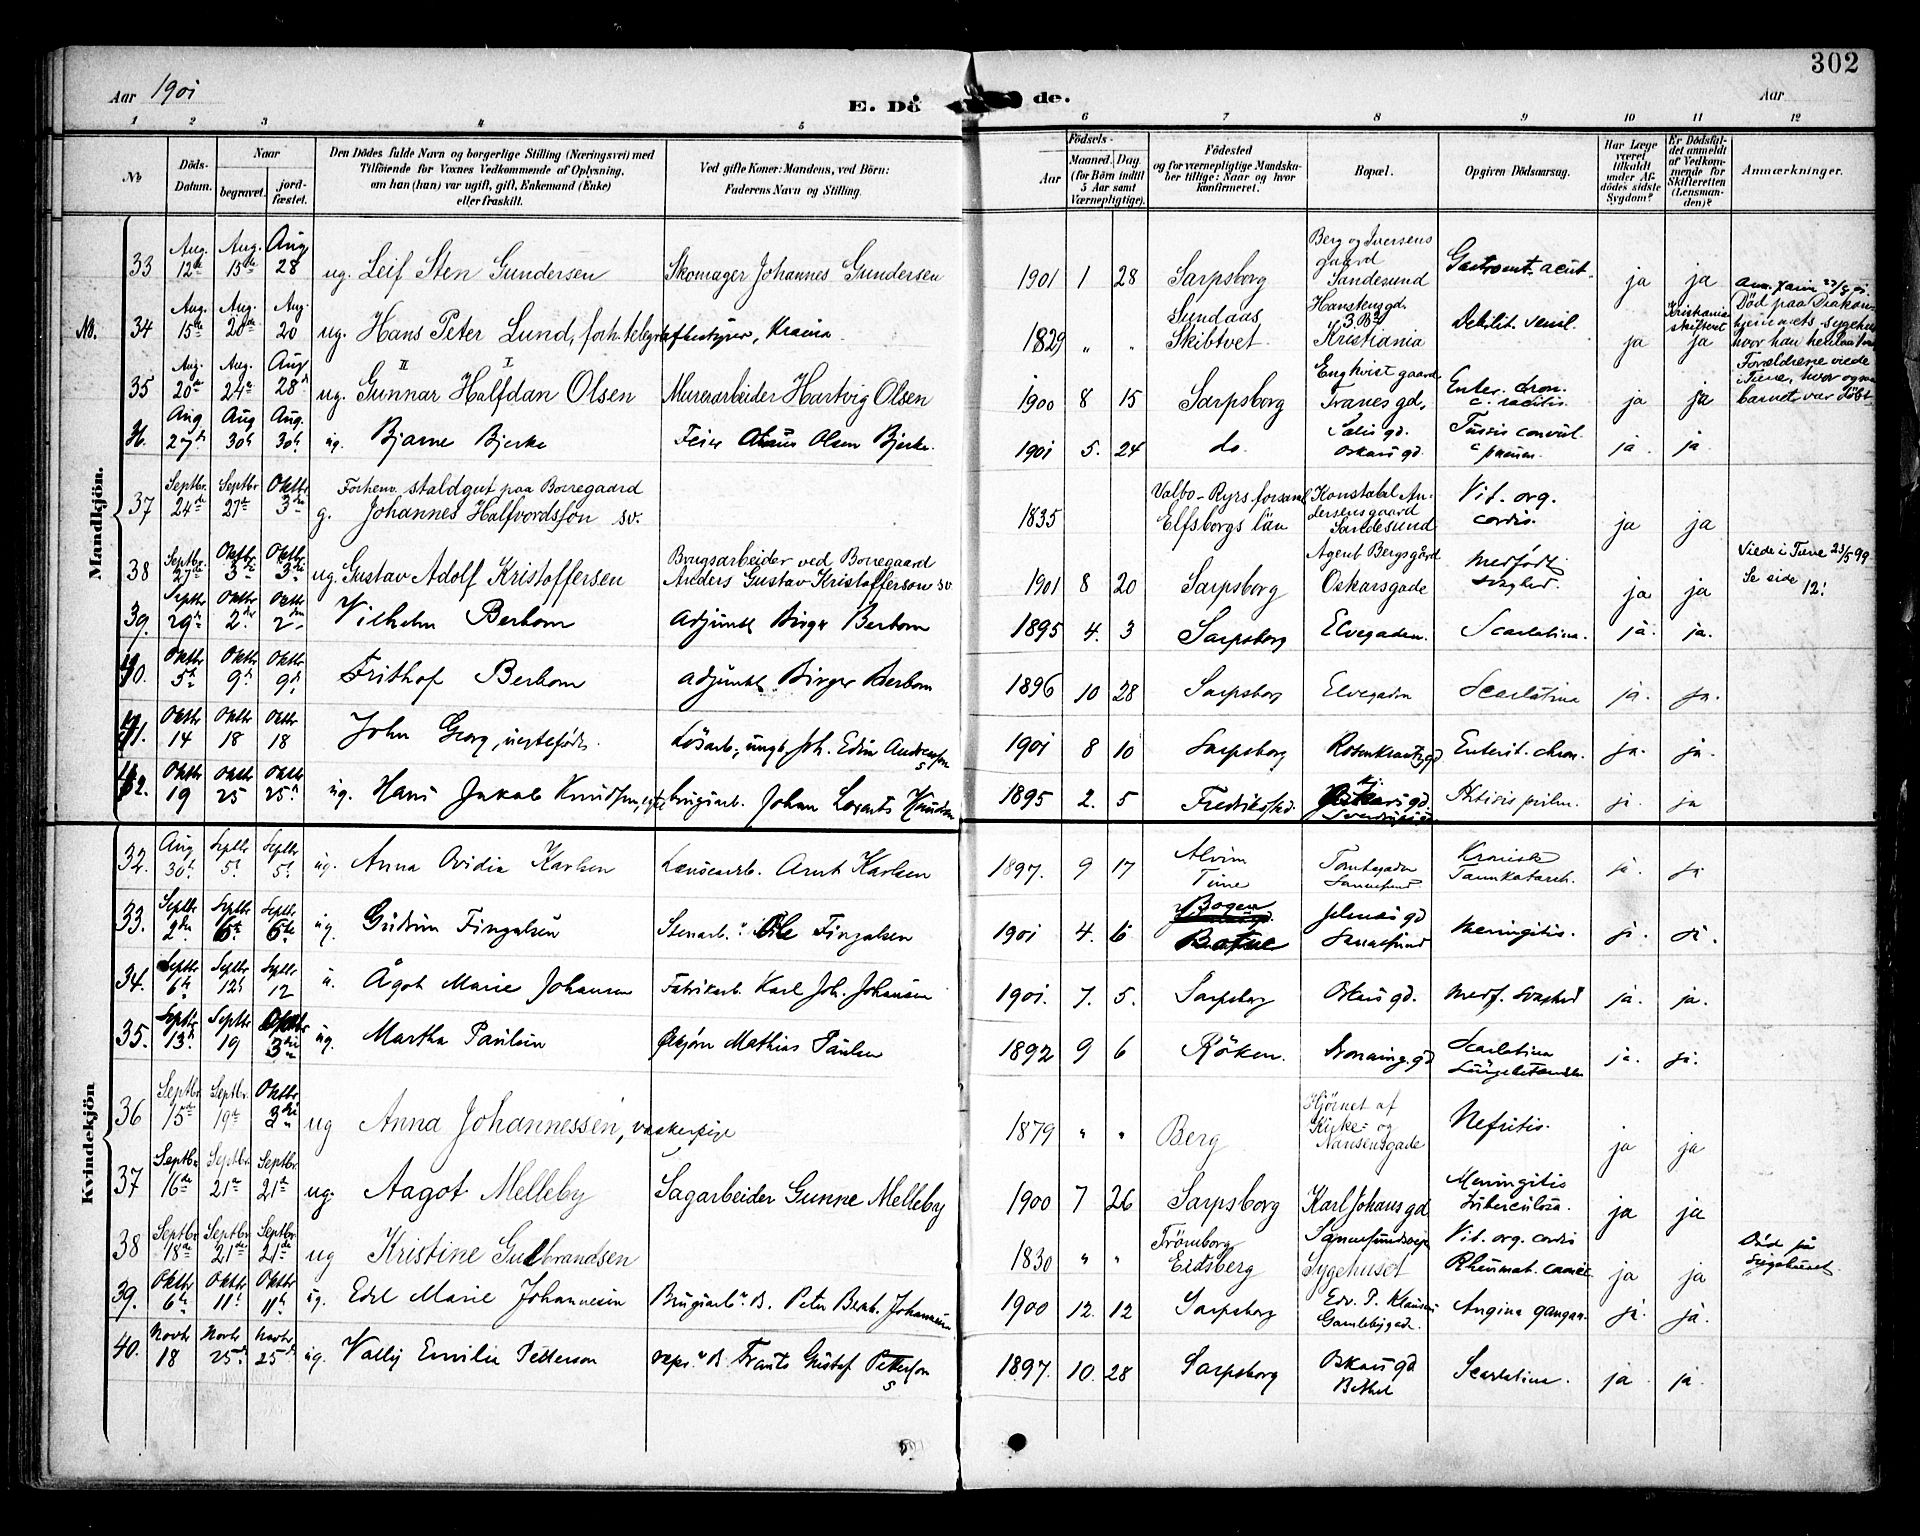 302
Aar 1901
E. Dö de.
Aar
1 2 3 4 5 6 7 8 9 10 11 12
No
Döds-Datum.
Naar
begravet.
jord-fæstet.
Den Dödes fulde Navn og borgerlige Stilling (Næringsvei) med
Tilföiende for Voxnes Vedkommende af Oplysning,
om han (hun) var ugift, gift, Enkemand (Enke)
eller fraskilt.
Ved gifte Koner: Mandens, ved Börn:
Faderens Navn og Stilling.
Födsels-
Aar
Maaned. Dag.
(for Börn indtil
5 Aar samt
Værnepligtige).
Födested
og for værnepligtige Mandska-
ber tillige: Naar og hvor
konfirmeret.
Bopæl.
Opgiven Dödsaarsag.
Har Læge
været
tilkaldt
under Af-
dödes sidste
Sygdom?
Er Dödsfal-
det anmeldt
af Vedkom-
mende for
Skifteretten
(Lensman-
den)?
Anmærkninger.
Mandkjön.
33 Aug. 12te Aug. 15de Aug 28 ug. Leif Sten Gundersen Skomager Johannes Gundersen 1901 1 28 Sarpsborg Berg og Iversens gaard Sandesund Gastroent. acut. ja ja
NB. 34 Aug. 15de Aug. 20de Aug 20 ug. Hans Peter Lund, forh. telegrafbestyrer, Kragerø 1829 " " Sundaas Skibtvet Kristiania Debilit. senil. ja Kristiania skifteret ja Død paa Diakon-hjemmets sygehus
35 Aug. 20de Aug. 24de Aug 28de ug. Gunnar Halfdan Olsen Murerarbeider Hartvig Olsen 1900 8 15 Sarpsborg Engkvist gaard Tranesgd. Enter. chron. c. racitis. ja ja Forældrene viede i Tune, hvor ogsaa barnet var døbt
36. Aug 27de Aug 30te Aug. 30te ug. Bjarne Bjerke Feier Olsen Bjerke. 1901 5. 24 do. Oskars gd. Tussis convul. c pneum. ja. ja.
37 Septbr. 24de Septbr. 27de Oktbr. 3die g. Forhenv. staldgut paa Borregaard Johannes Halfvordsson sv. 1835 Valbo-Ryrs forsaml. Elfsborgs län Konstabel Andersensgaard Sandesund Vit. org. cordis. ja ja
38 Septbr. 27de Oktbr. 3die Oktbr. 3die ug. Gustav Adolf Kristoffersen Brugsarbeider ved Borregaard Anders Gustav Kristofferson sv 1901 8 20 Sarpsborg Agent Bergsgård Oskarsgade medfødt svaghed. ja ja Viede i Tune 23/5 99 Se side 12!
39. Septbr 29de Oktbr 2. Oktbr 2 Vilhelm Berbom adjunkt Birger Berbom 1895 4. 3 Sarpsborg Elvegaden. Scarlatina. ja. ja.
40. Oktbr 5te Oktbr 9de Oktbr 9de Frithof Berbom adjunkt. Birger Berbom 1896 10 28 Sarpsborg Elvegaden Scarlatina ja. ja.
41. Oktbr 14 Oktbr 18 Oktbr 18 John Georg, uegtefødt. Løsarb., ungk. Joh. Edin Andreassen 1901 8 10 Sarpsborg Rosenkrantzgd Enterit. chron. ja. ja.
42. Oktbr 19 Oktbr 25 Oktbr 25de ug. Hans Jakob Knudsen, brugsarb. Johan Knudsen 1895 2. 5 Fredrikstad. ja. ja
Kvindekjön
32. Aug 30te Septbr 5te Septbr 5te ug. Anna Ovidia Karlsen Lænsearb. Arnt Karlsen 1897. 9 17 Alvim Tune Tomtegaden Sannesund Kronisk Tarmkatarrh. ja. ja.
33. Septbr 2den Septbr 6te Septbr 6te ug. Gudrun Fingalsen Stenarb. Ole Fingalsen 1901 4. 6 Bogen Sannesund Meningitis. ja. ja.
34. Septbr 6te Septbr 12te Septbr 12 u. Ågot Marie Johansen Fabrikarb. Karl Joh. Johansen 1901. 7. 5. Sarpsborg Oskars gd. medf. svaghed ja. ja.
35. Septbr 13de Septbr 19 Oktbr 3die ug. Martha Paulsen Mathias Paulsen 1892 9 6 Røken. Dronning gd Scarlatina ja. ja.
36 Septbr. 15de Septbr. 19de Oktbr 3die ug Anna Johannessen, vaskepige 1879 " " Berg Hjørnet af Kirke- og Nansensgade Nefritis. ja ja
37 Septbr 16de Septbr. 21de Septbr. 21de ug. Aagot Melleby Sagarbeider Gunne Melleby 1900 7 26 Sarpsborg Karl Johans gd Meningitis tuberculosa. ja ja
38 Septbr. 18de Septbr. 21de Septbr. 21de ug Kristine Gulbrandsen 1830 " " Trömborg Eidsberg Sannesundsveien Sygehuset Vit. org. cordis Rheumat. ja ja Død på Sygehuset.
39. Oktbr 6te Oktbr 11te Oktbr 11te ug. Edel Marie Johannesen Brugsarb. B. Peter Bernh. Johannesen 1900 12. 12 Sarpsborg Edv. P. Klausen Gamlebygad. Angina gangræn. ja. ja.
40. Novbr 18 Novbr 25de Novbr 25de ug. Vally Emilie Petterson Frants Gustaf Petterson 1897. 10. 28 Sarpsborg Oskars gd Bethel Scarlatina. ja ja.